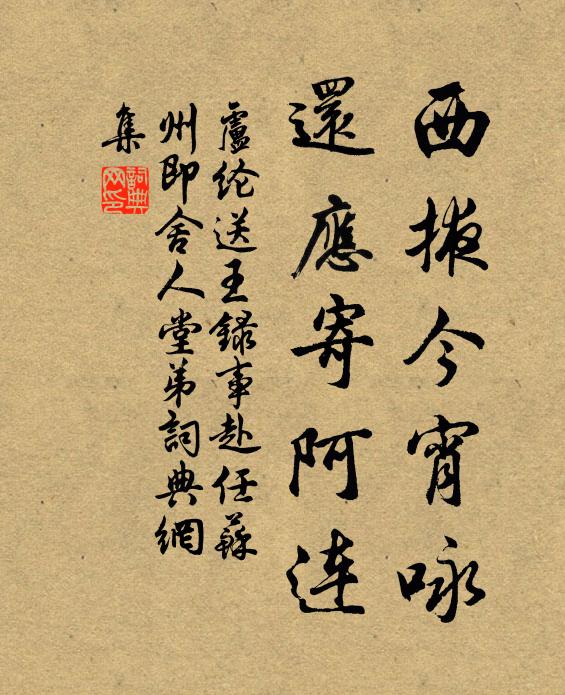 西掖今宵咏
還應寄阿連
盧纶送王録事赴任蘇
州即舍人堂弟詞典網
集
詞典
网印